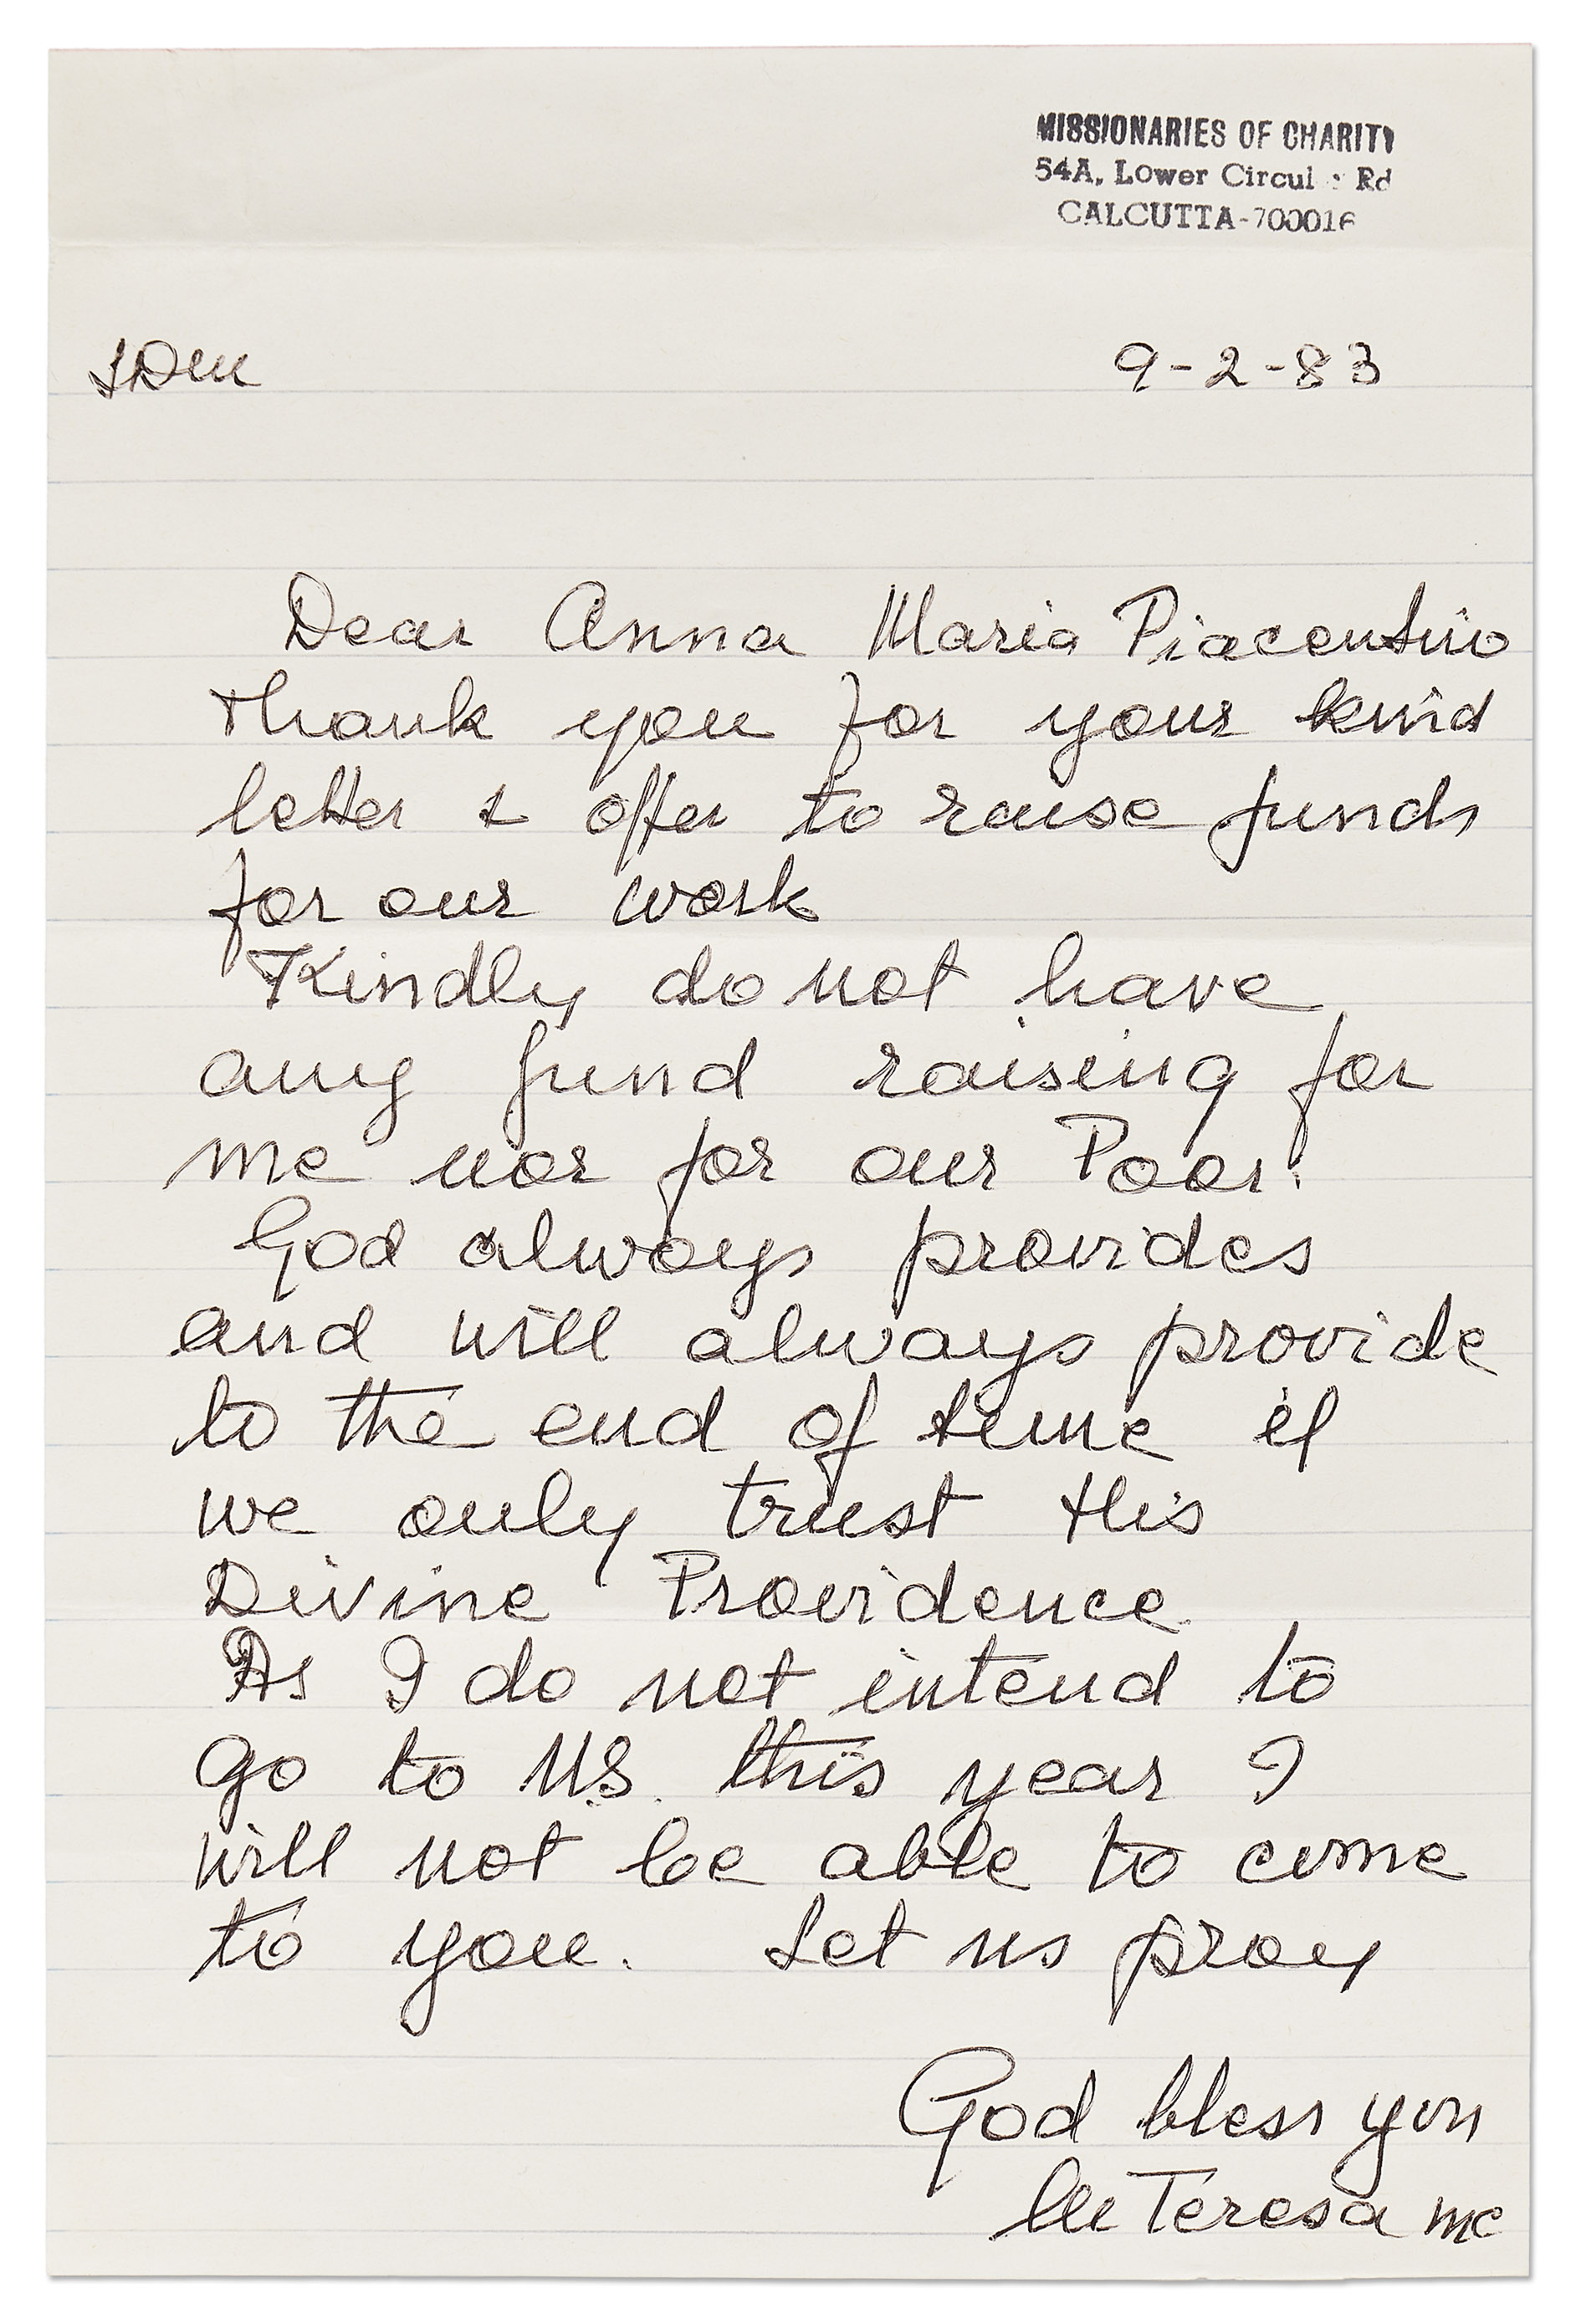 MISSIONARIES OF CHARITY
54A, Lower Circular Rd
CALCUTTA-700016
LDM
9-2-83
Dear Anna Maria Piacentino
Thank you for your kind
letter & offer to raise funds
for our work
Kindly do not have
any fund raising for
me nor for our Poor.
God always provides
and will always provide
to the end of time if
we only trust His
Divine Providence.
As I do not intend to
go to U.S. this year I
will not be able to come
to you. Let us pray
God bless you
M Teresa mc